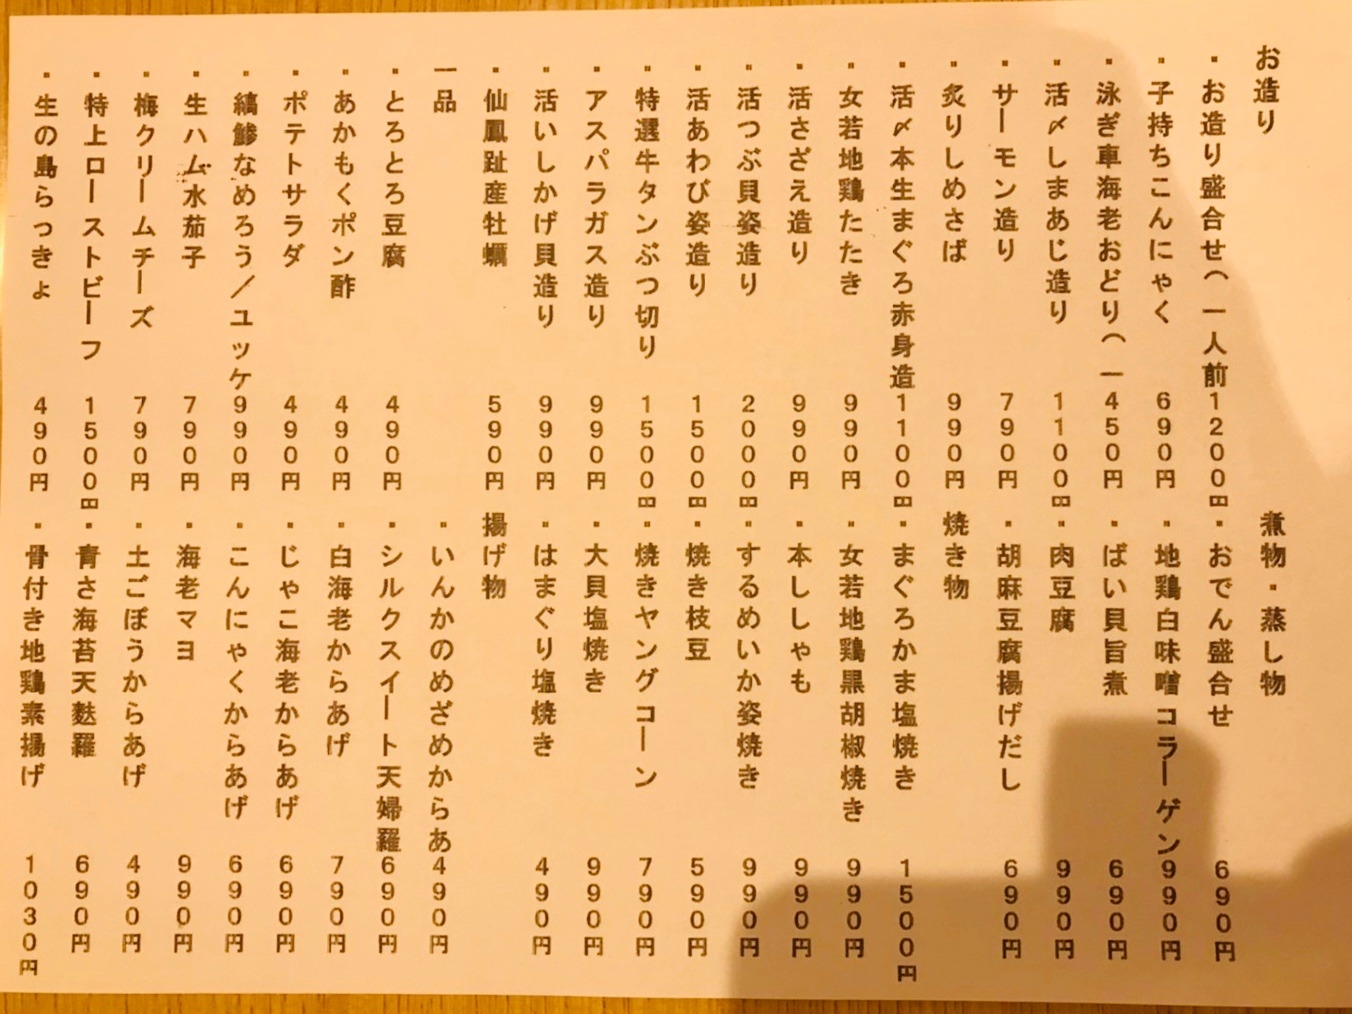 お造り
・お造り盛合せ(一人前 1200円
・子持ちこんにゃく 690円
・泳ぎ車海老おどり(一 450円
・活〆しまあじ造り 1100円
・サーモン造り 790円
・炙りしめさば 990円
・活〆本生まぐろ赤身造 1100円
・女若地鶏たたき 990円
・活さざえ造り 990円
・活つぶ貝姿造り 2000円
・活あわび姿造り 1500円
・特選牛タンぶつ切り 1500円
・アスパラガス造り 990円
・活いしかげ貝造り 990円
・仙鳳趾産牡蠣 590円
一品
・とろとろ豆腐 490円
・あかもくポン酢 490円
・ポテトサラダ 490円
・縞鯵なめろう/ユッケ 990円
・生ハム水茄子 790円
・梅クリームチーズ 790円
・特上ローストビーフ 1500円
・生の島らっきょ 490円
煮物・蒸し物
・おでん盛合せ 690円
・地鶏白味噌コラーゲン 990円
・ばい貝旨煮 690円
・肉豆腐 990円
・胡麻豆腐揚げだし 690円
焼き物
・まぐろかま塩焼き 1500円
・女若地鶏黒胡椒焼き 990円
・本ししゃも 990円
・するめいか姿焼き 990円
・焼き枝豆 590円
・焼きヤングコーン 790円
・大貝塩焼き 990円
・はまぐり塩焼き 490円
揚げ物
・いんかのめざめからあ 490円
・シルクスイート天婦羅 690円
・白海老からあげ 790円
・じゃこ海老からあげ 690円
・こんにゃくからあげ 690円
・海老マヨ 990円
・土ごぼうからあげ 490円
・青さ海苔天麩羅 690円
・骨付き地鶏素揚げ 1030円